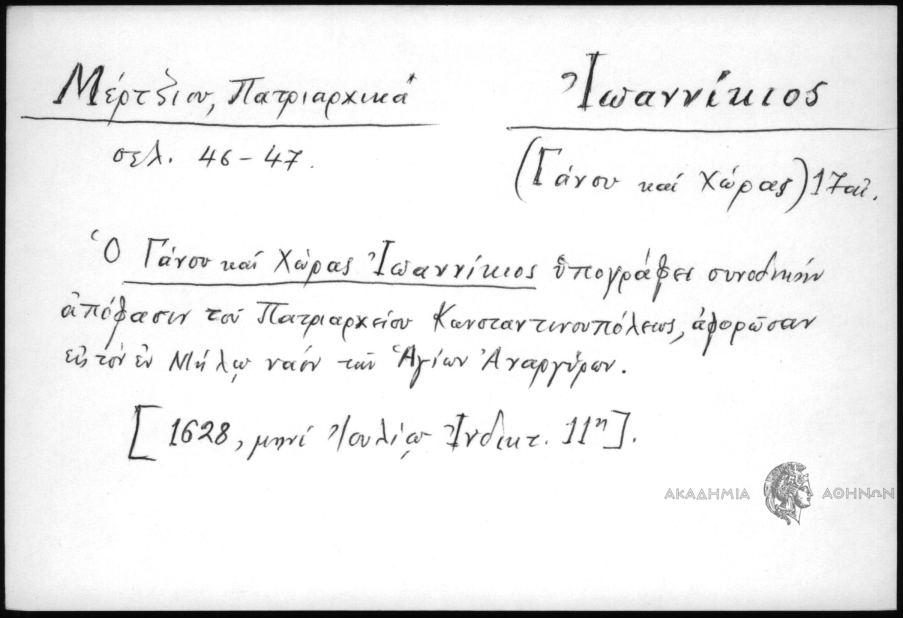 Μέρτζιου, Πατριαρχικά
σελ. 46-47.
Ἰωαννίκιος
(Γάνου καί Χώρας) 17 αἰ.
Ὁ Γάνου καί Χώρας Ἰωαννίκιος ὑπογράφει συνοδικήν
ἀπόφασιν τοῦ Πατριαρχείου Κωνσταντινουπόλεως, ἀφορῶσαν
εἰς τόν ἐν Μήλῳ ναόν τῶν Ἁγίων Ἀναργύρων.
[1628, μηνί Ἰουλίῳ Ἰνδικτ. 11η].
ΑΚΑΔΗΜΙΑ ΑΘΗΝΩΝ